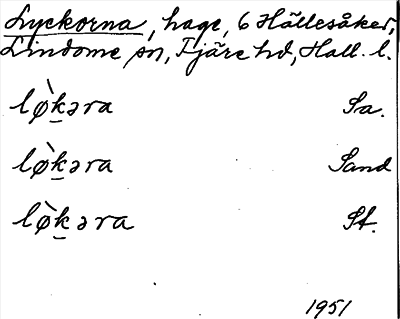 Lyckorna, hage, 6 Hällesåker,
Lindome sn, Fjäre hd, Hall. l.
lø̀k̠əra Sa.
lø̀k̠əra Sand
lø̀k̠əra St.
1951